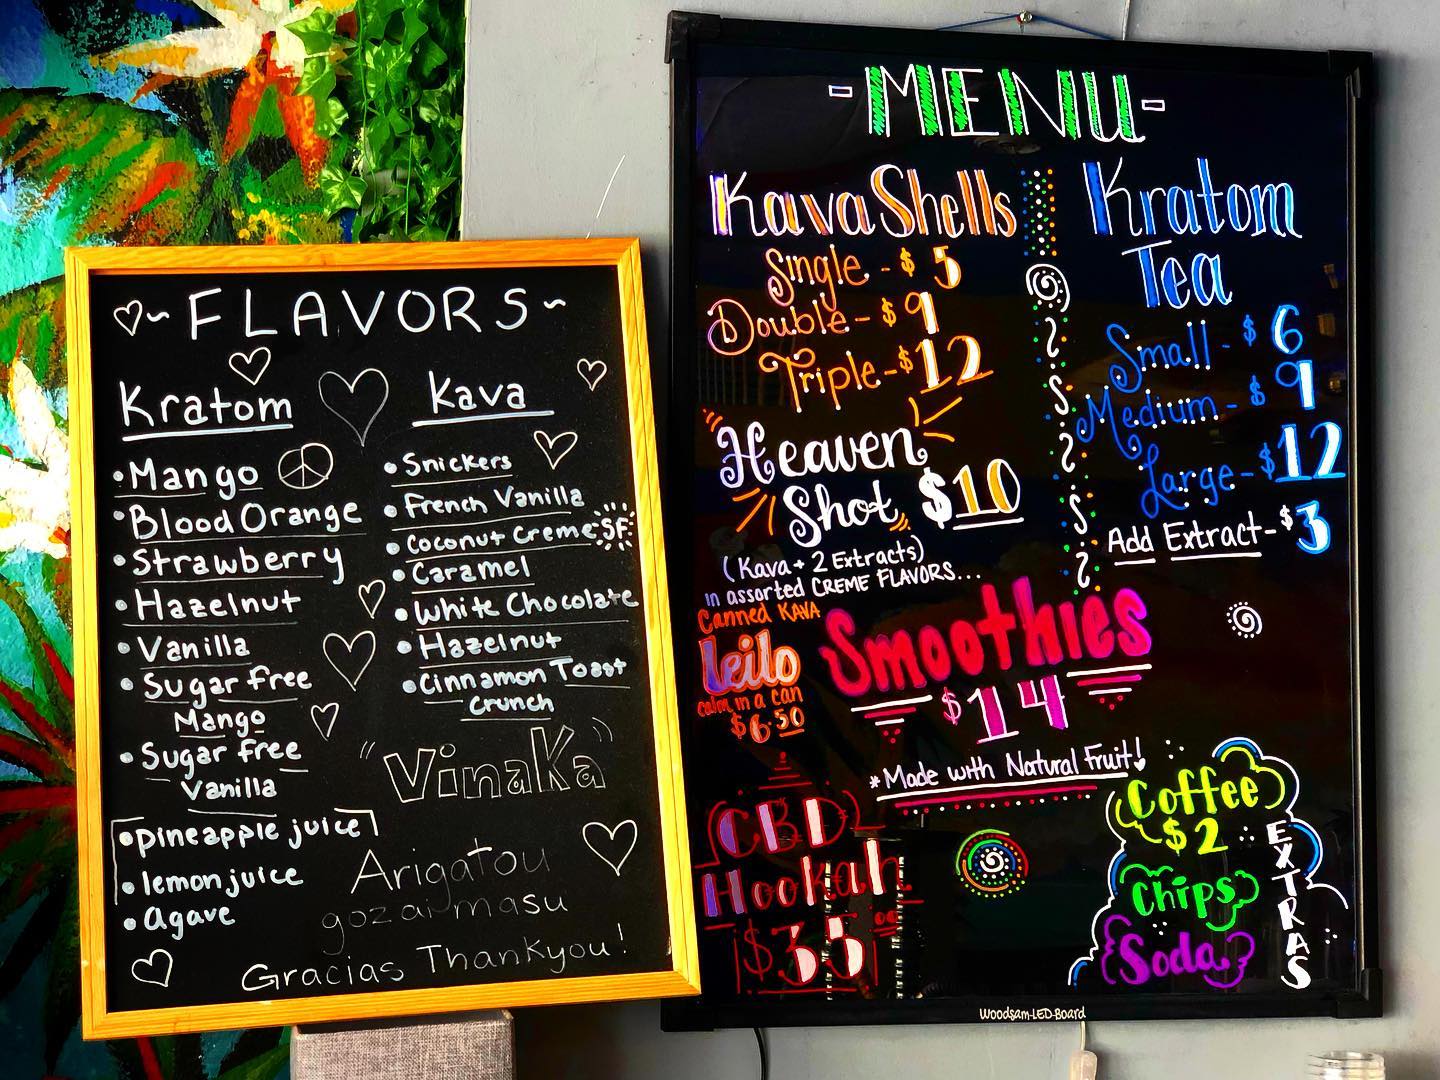 ~FLAVORS~
Kratom
•Mango
•Blood Orange
•Strawberry
•Hazelnut
•Vanilla
•Sugar free
Mango
•Sugar free
Vanilla
•pineapple juice
•lemon juice
•Agave
Kava
•Snickers
•French Vanilla
•Coconut Creme SF
•Caramel
•White Chocolate
•Hazelnut
•Cinnamon Toast
Crunch
"Vinaka"
Arigatou
gozaimasu
Gracias Thankyou!
-MENU-
Kava Shells
Single - $5
Double - $9
Triple - $12
Heaven
Shot $10
(Kava + 2 Extracts)
in assorted CREME FLAVORS...
Canned KAVA
leilo
calm in a can
$6.50
Kratom
Tea
Small - $6
Medium - $9
Large - $12
Add Extract - $3
Smoothies
$14
*Made with Natural Fruit!
CBD
Hookah
$35.00
Coffee
$2
Chips
Soda
EXTRAS
Woodsam-LED-Board